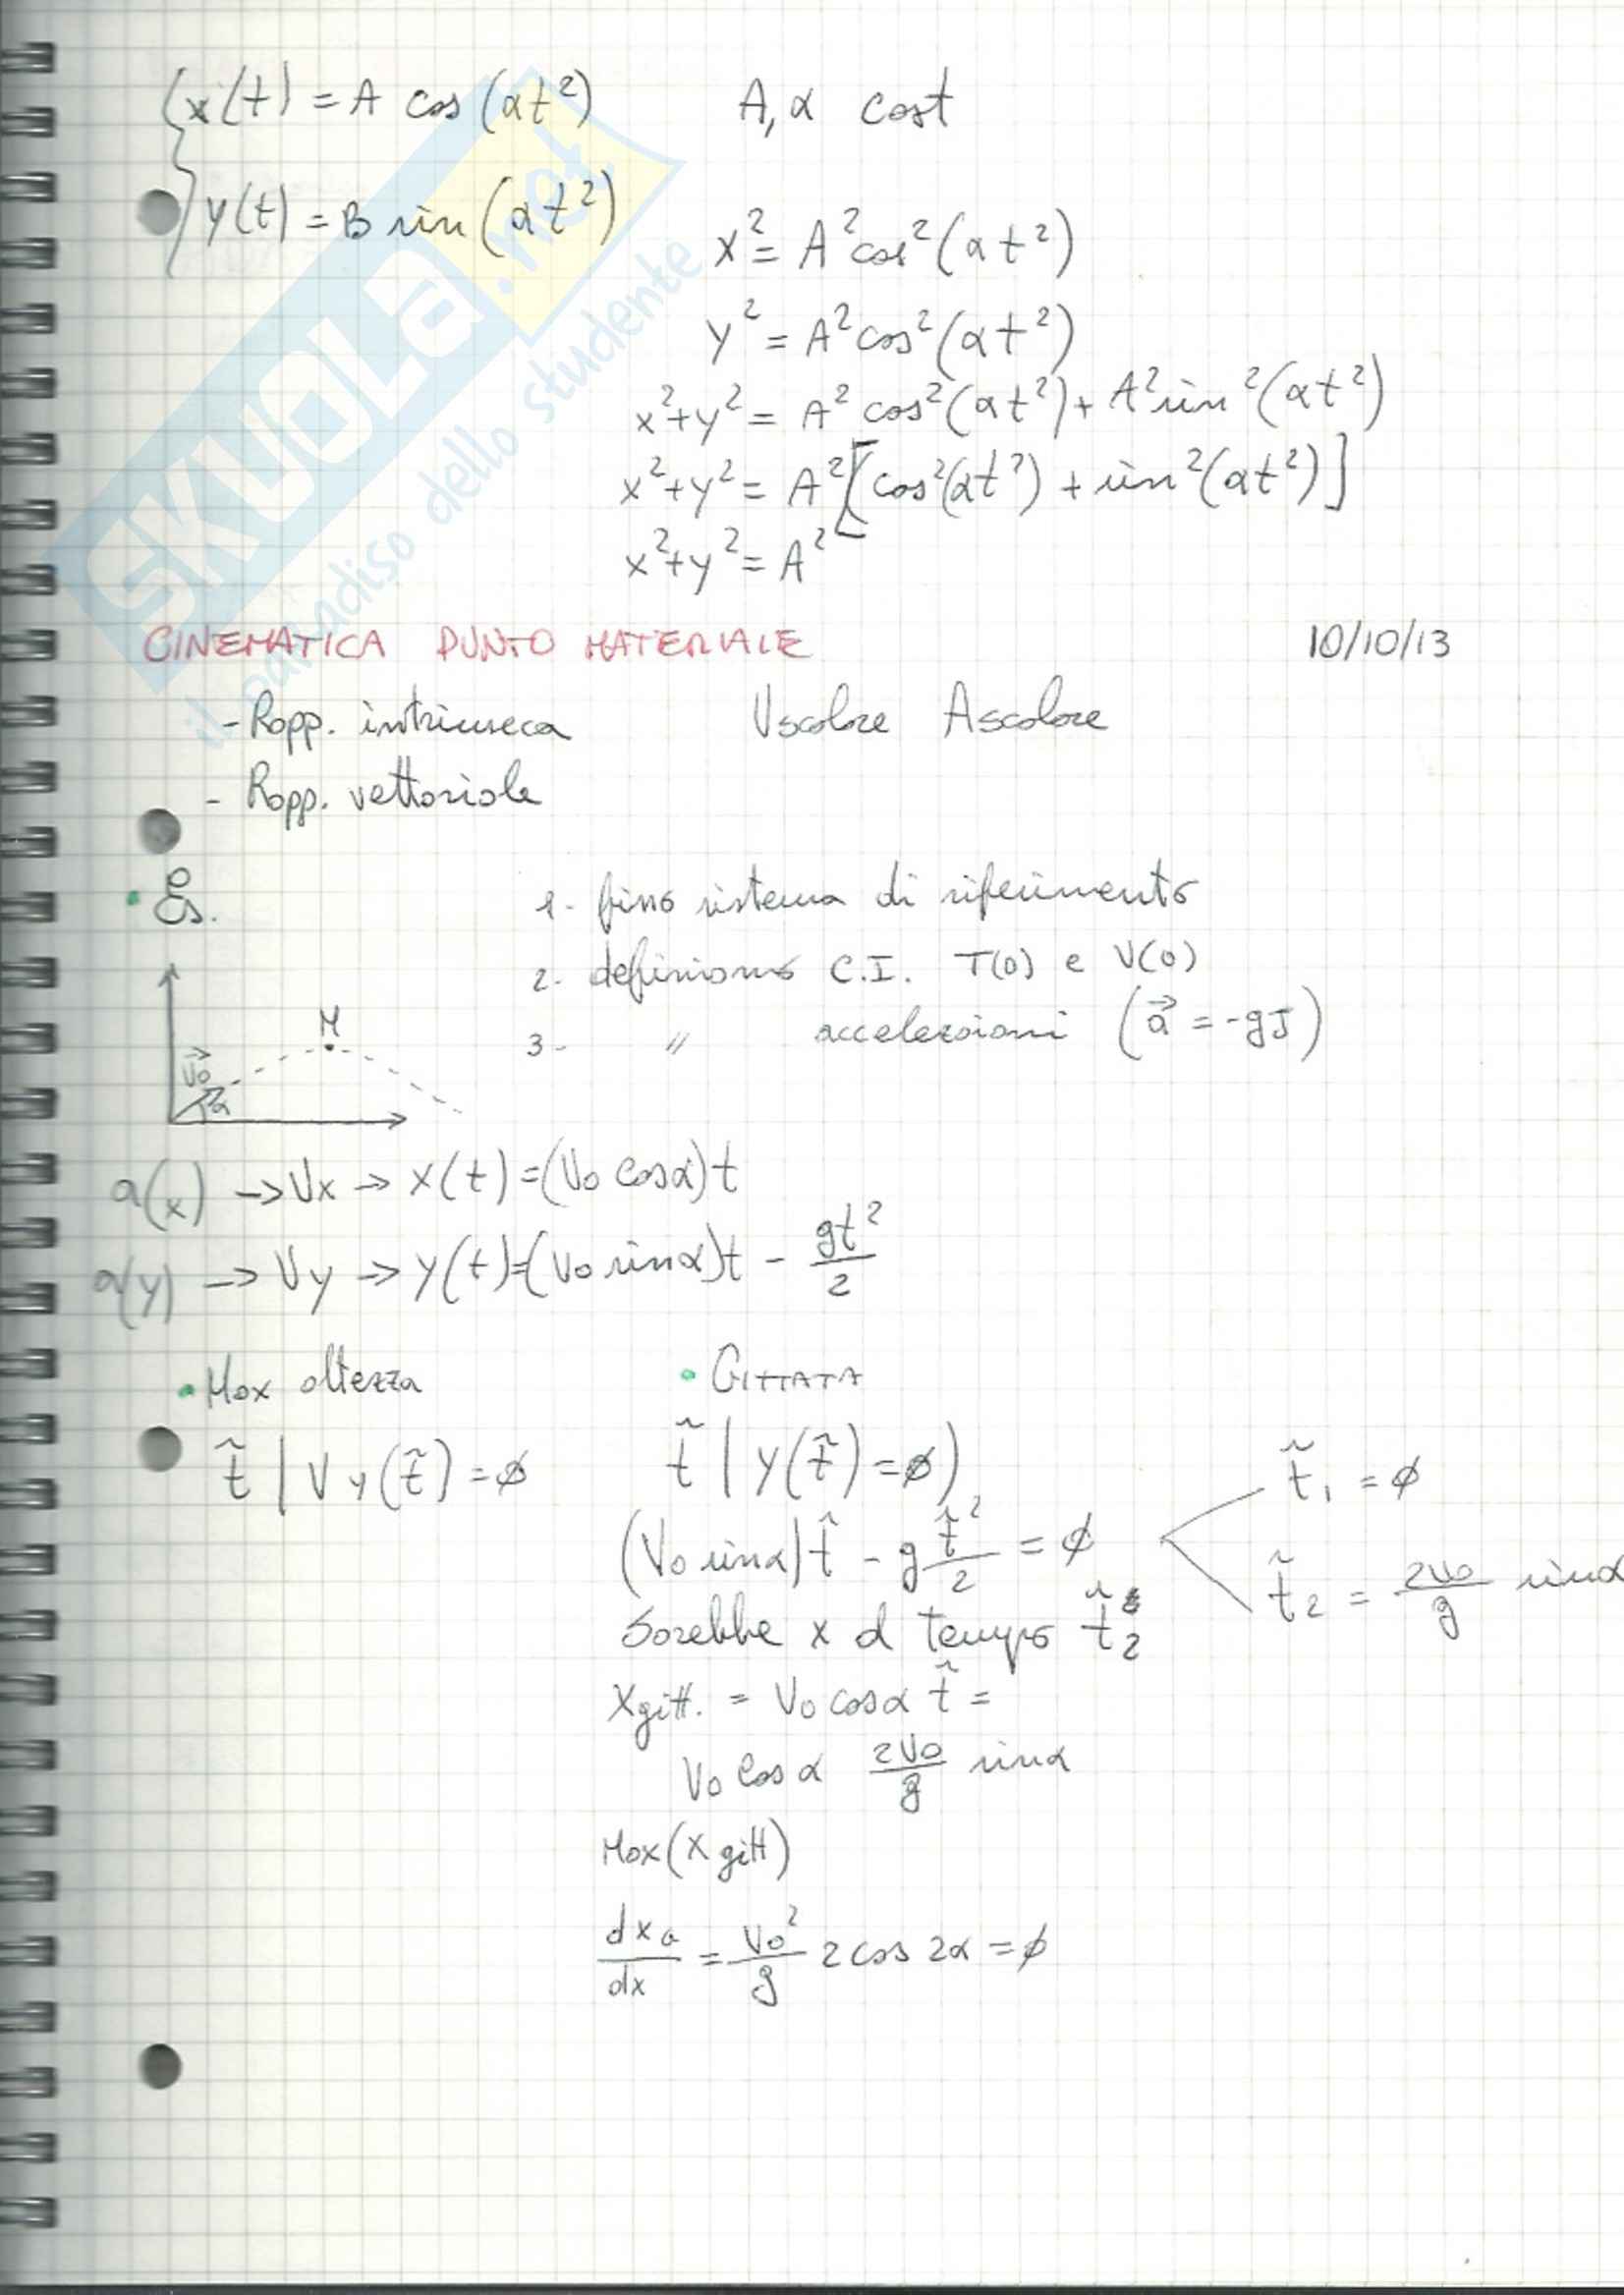 x(t) = A cos(αt²)    A, α cost
y(t) = B sin(αt²)
x² = A² cos²(αt²)
y² = A² cos²(αt²)
x²+y² = A² cos²(αt²) + A² sin²(αt²)
x²+y² = A² [cos²(αt²) + sin²(αt²)]
x²+y² = A²
SKUOLA.net
il paradiso dello studente
CINEMATICA PUNTO MATERIALE    10/10/13
- Rapp. intrinseca    Vscalare Ascalare
- Rapp. vettoriale
• Es.
1- fisso sistema di riferimento
2- definiamo C.I. T(0) e V(0)
3- " accelerazioni (a⃗ = -gJ)
M
V⃗0
α
a(x) → Vx → x(t) = (V0 cosα)t
a(y) → Vy → y(t) = (V0 sinα)t - gt²/2
• Max altezza    • GITTATA
t̃ | Vy(t̃) = ∅    t̃ | y(t̃) = ∅)
t̃₁ = ∅
(V0 sinα) t̃ - g t̃²/2 = ∅
t̃₂ = 2V0/g sinα
Sarebbe x al tempo t̃₂
Xgitt. = V0 cosα t̃ =
V0 cosα 2V0/g sinα
Max(Xgitt)
dxG/dx = V0²/g 2 cos 2α = ∅